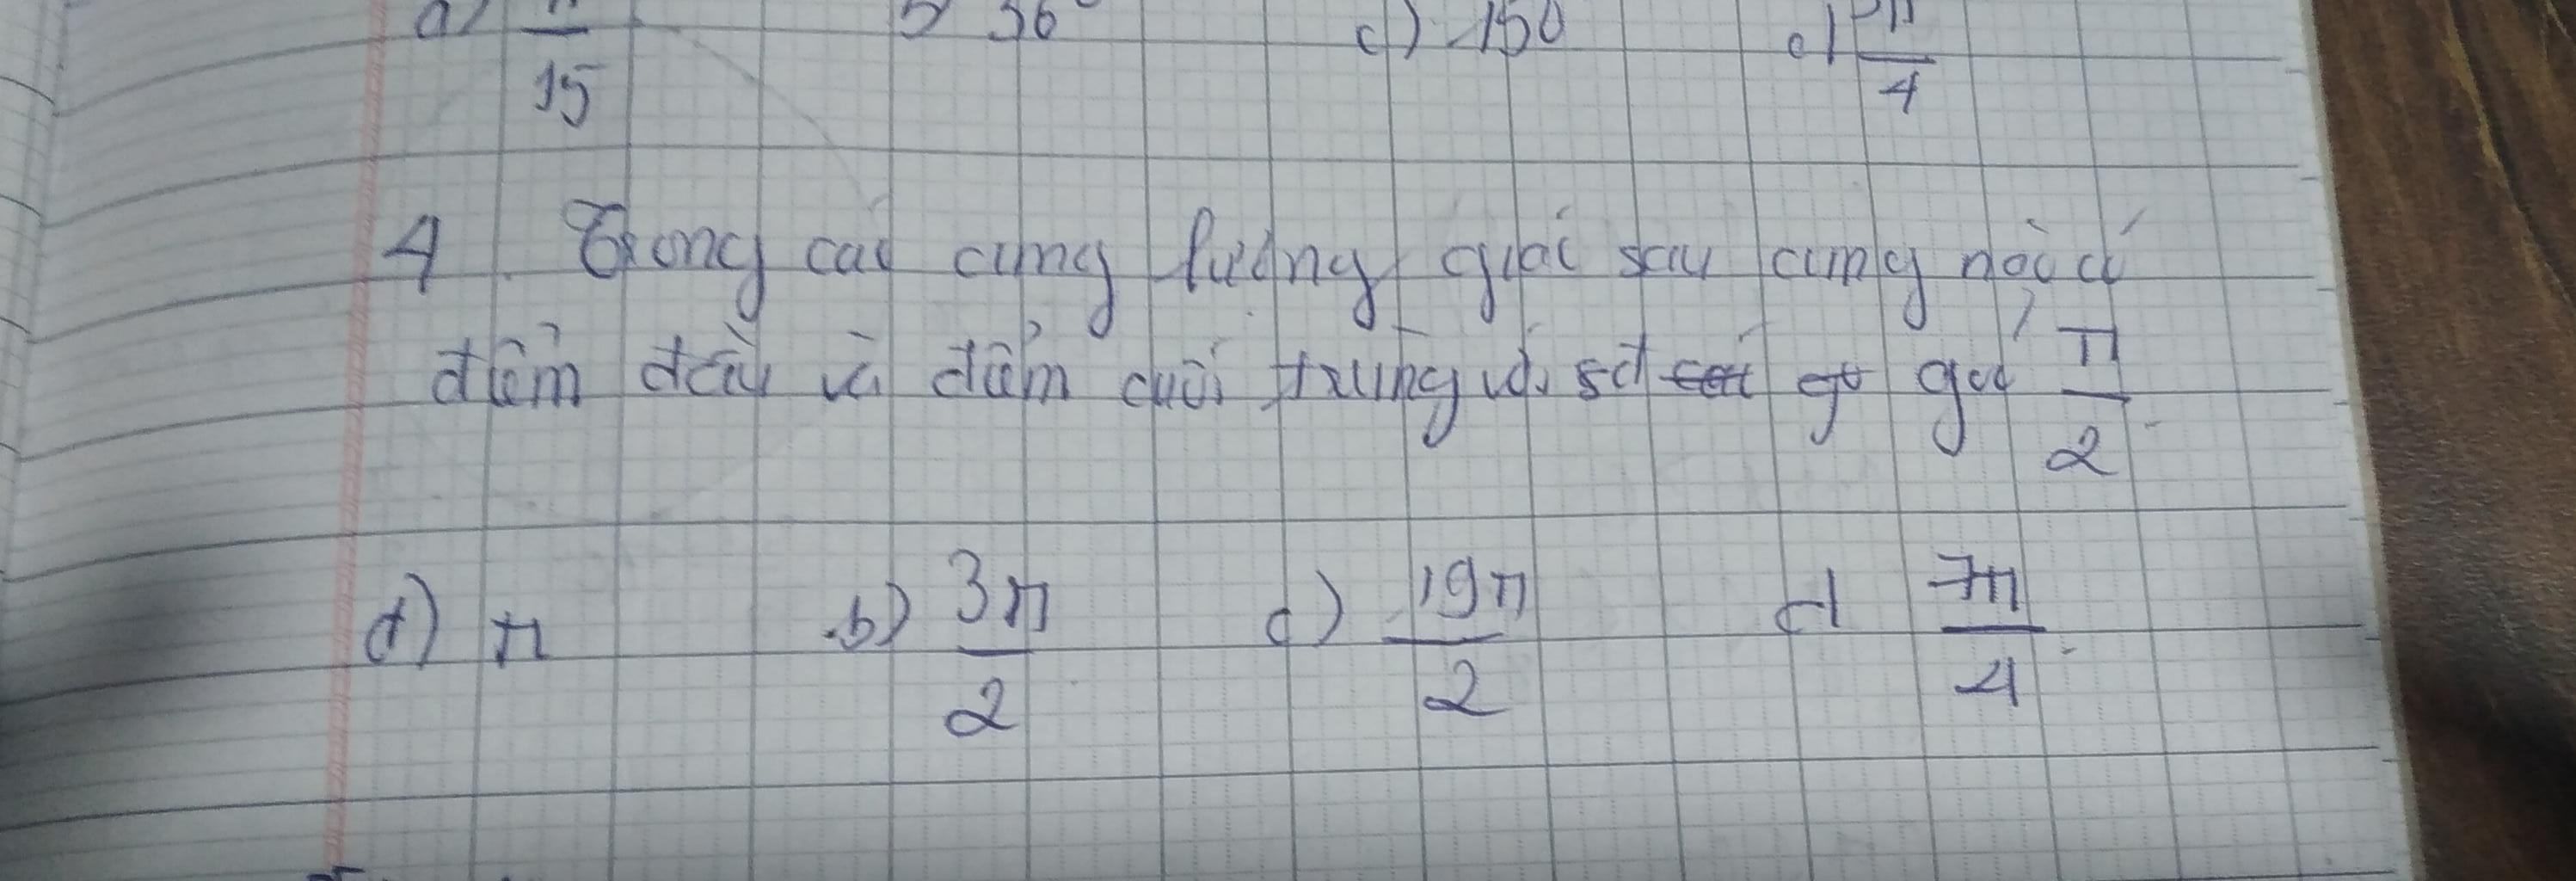 a) π/15 b) 36° c) -150 d) π/4
4. Trong các cung lượng giác sau cung nào có
điểm đầu và điểm cuối trùng với sđ góc π/2
a) π b) 3π/2 c) 19π/2 d 7π/4